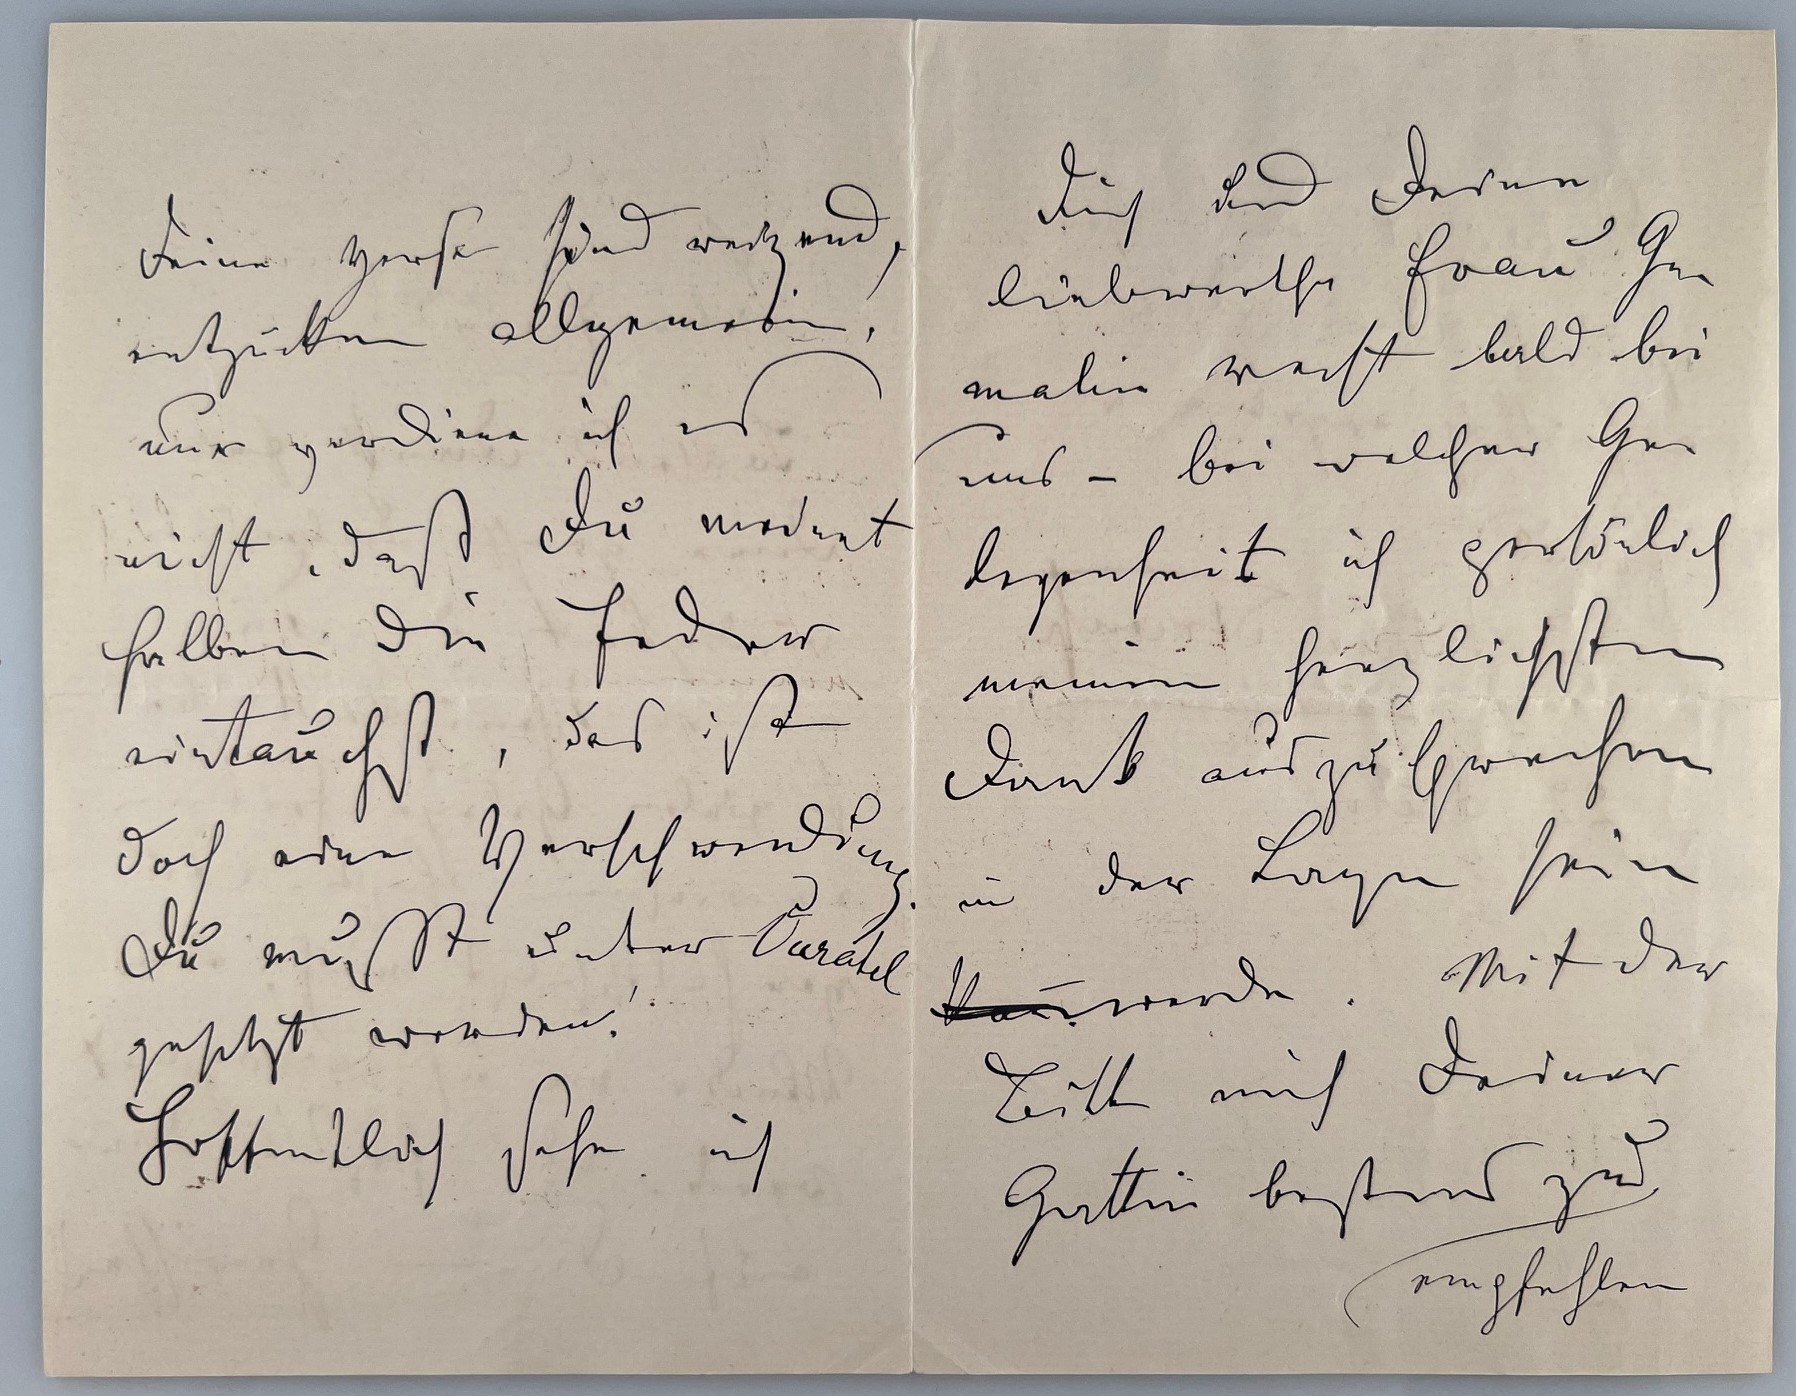 Deine Verse sind reizend,
entzücken allgemein,
nur verdiene ich es
nicht, daß Du meinet
halben die Feder
eintauchst, das ist
doch eine Verschwendung.
Du mußt unter Curatel
gesetzt werden!
Hoffentlich sehe ich
Dich und Deine
liebwerthe Frau Ge
malin recht bald bei
uns – bei welcher Ge
legenheit ich persönlich
meinen herzlichsten
Dank auszusprechen
in der Lage sein
werde. Mit der
Bitte mich Deiner
Gattin bestens zu
empfehlen